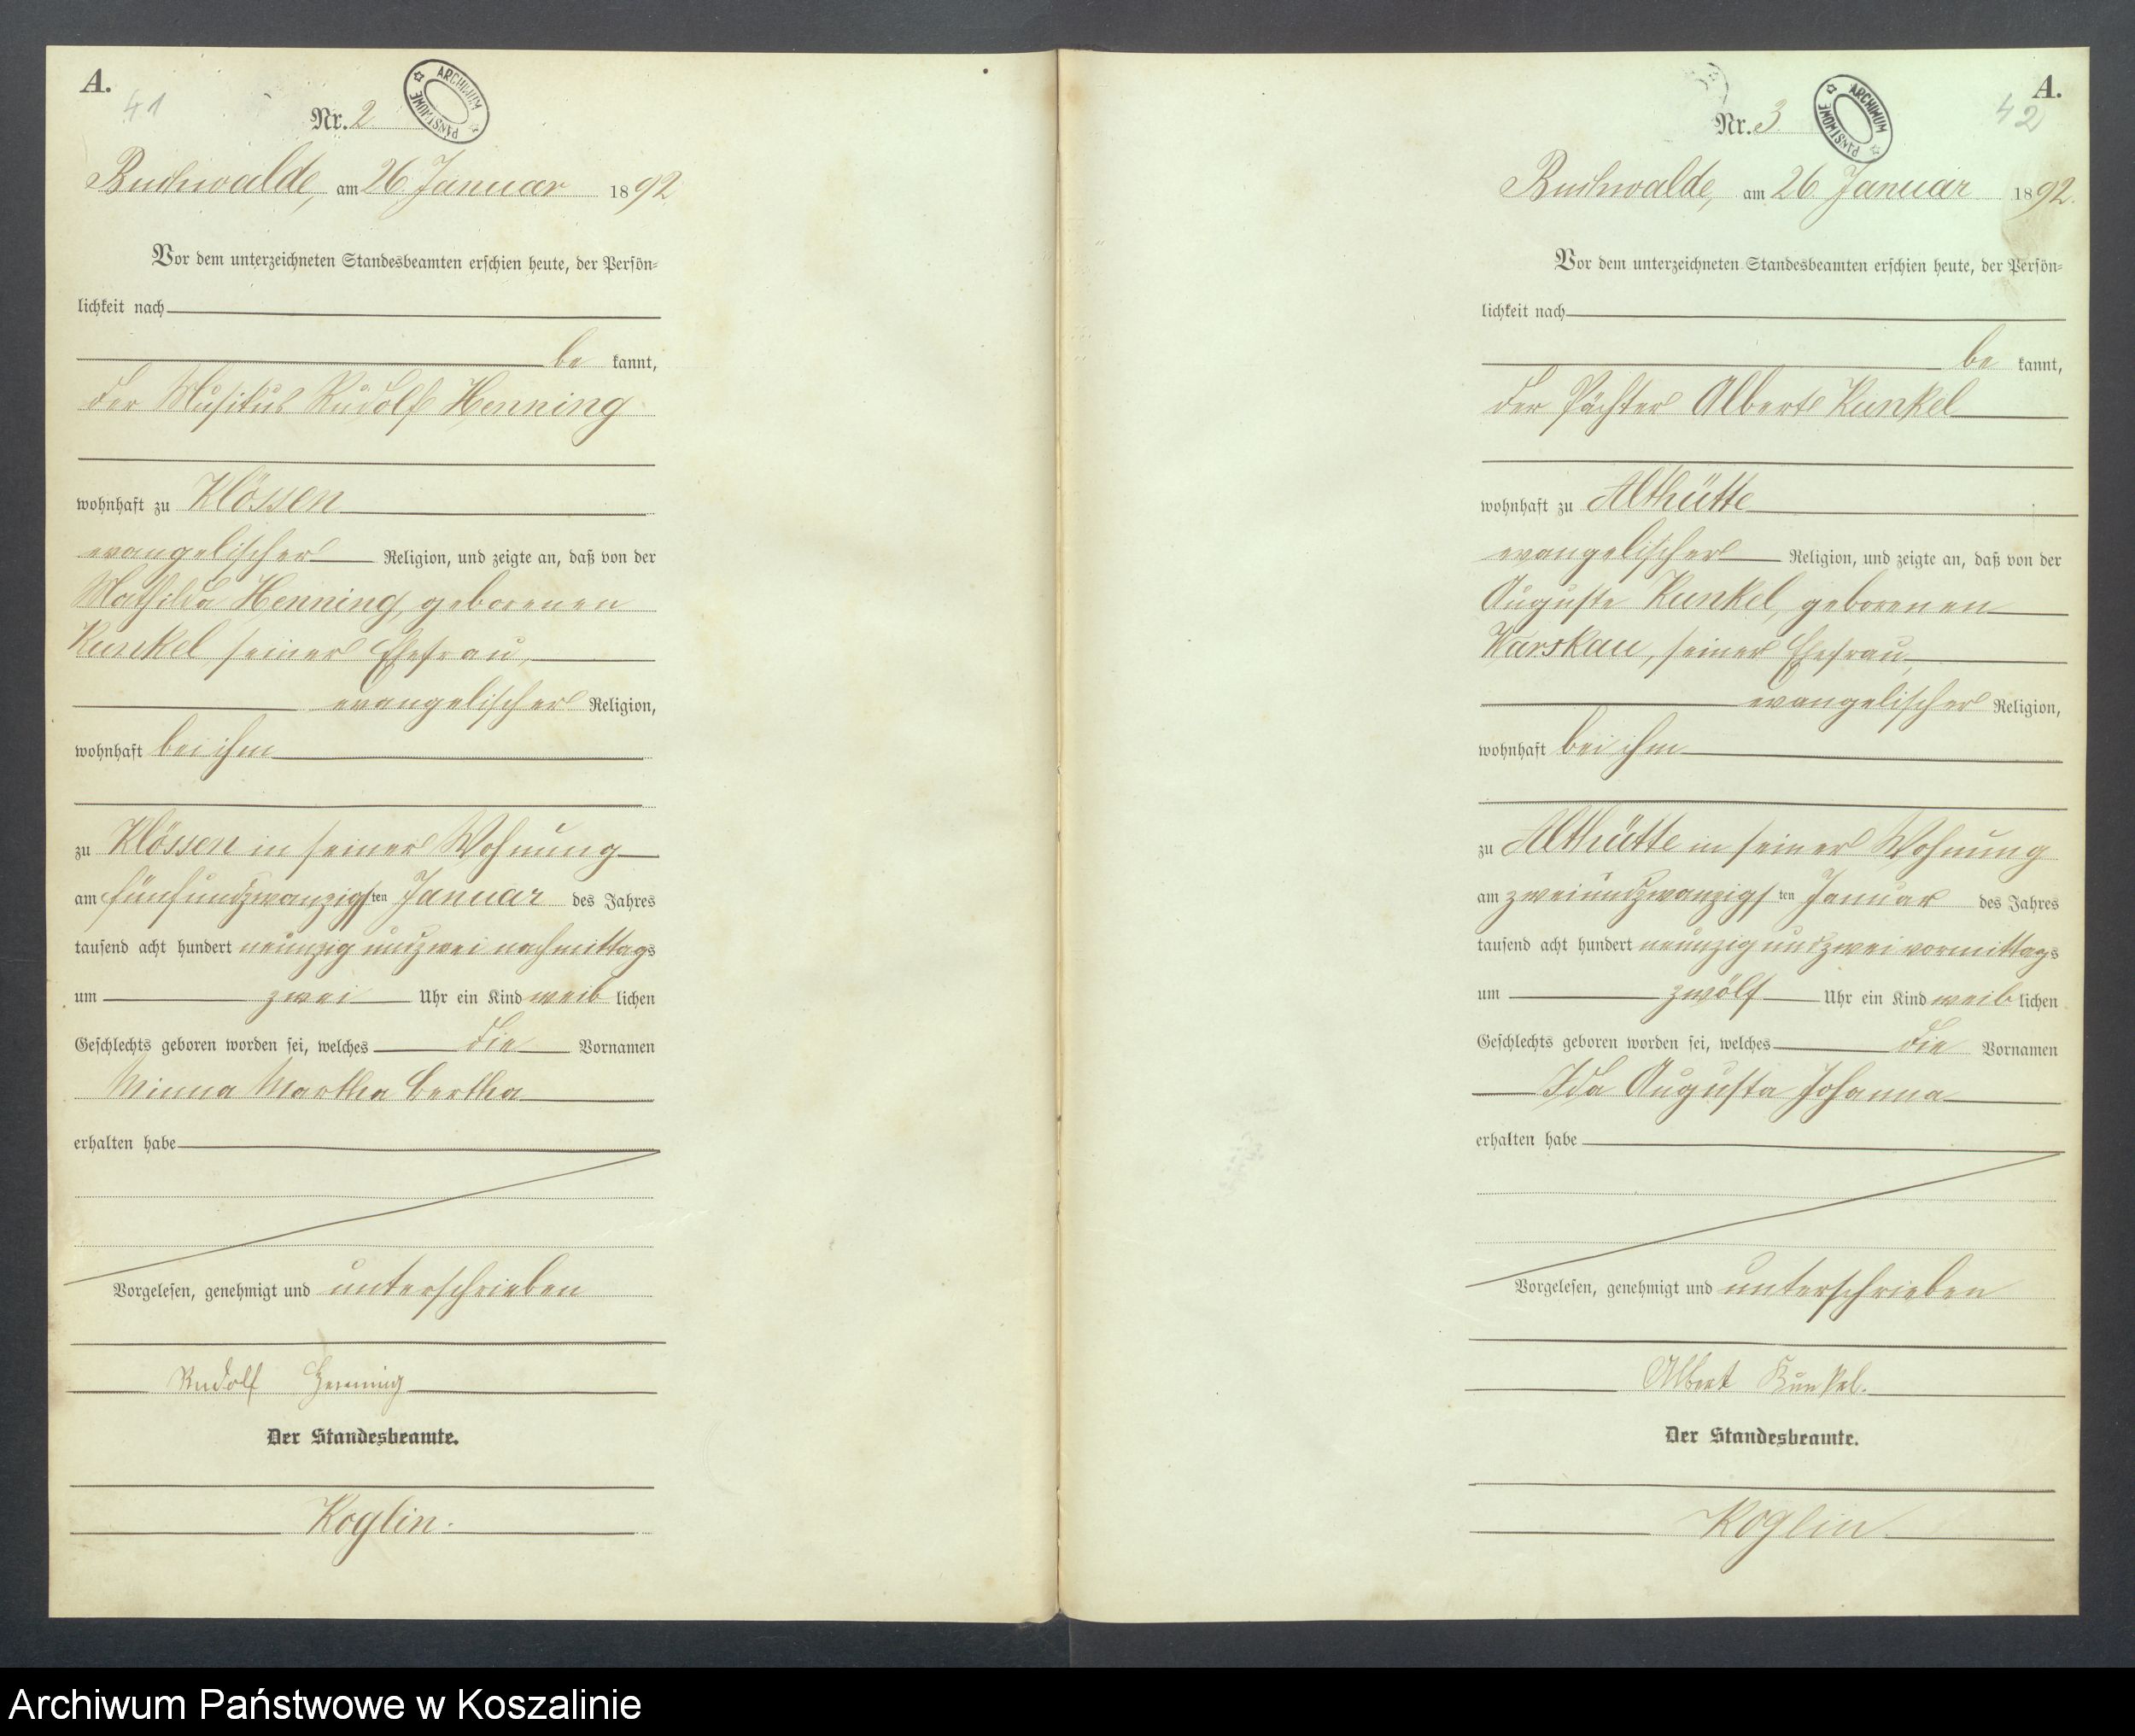 A.
41
Nr. 2
ARCHIWUM PAŃSTWOWE
Buchwalde, am 26 Januar 1892
Vor dem unterzeichneten Standesbeamten erschien heute, der Persön-
lichkeit nach
be kannt,
der Musikus Rudolf Henning
wohnhaft zu Klössen
evangelischer Religion, und zeigte an, daß von der
Mathilda Henning, geborenen
Kunkel, seiner Ehefrau,
evangelischer Religion,
wohnhaft bei ihm
zu Klössen in seiner Wohnung
am fünfundzwanzigsten Januar des Jahres
tausend acht hundert neunzig und zwei nachmittags
um zwei Uhr ein Kind weiblichen
Geschlechts geboren worden sei, welches die Vornamen
Minna Martha Bertha
erhalten habe
Vorgelesen, genehmigt und unterschrieben
Rudolf Henning
Der Standesbeamte.
Koglin.
A.
42
Nr. 3
ARCHIWUM PAŃSTWOWE
Buchwalde, am 26 Januar 1892.
Vor dem unterzeichneten Standesbeamten erschien heute, der Persön-
lichkeit nach
be kannt,
der Pächter Albert Kunkel
wohnhaft zu Althütte
evangelischer Religion, und zeigte an, daß von der
Auguste Kunkel, geborenen
Warskau, seiner Ehefrau,
evangelischer Religion,
wohnhaft bei ihm
zu Althütte in seiner Wohnung
am zweiundzwanzigsten Januar des Jahres
tausend acht hundert neunzig und zwei vormittags
um zwölf Uhr ein Kind weiblichen
Geschlechts geboren worden sei, welches die Vornamen
Ida Augusta Johanna
erhalten habe
Vorgelesen, genehmigt und unterschrieben
Albert Kunkel.
Der Standesbeamte.
Koglin
Archiwum Państwowe w Koszalinie